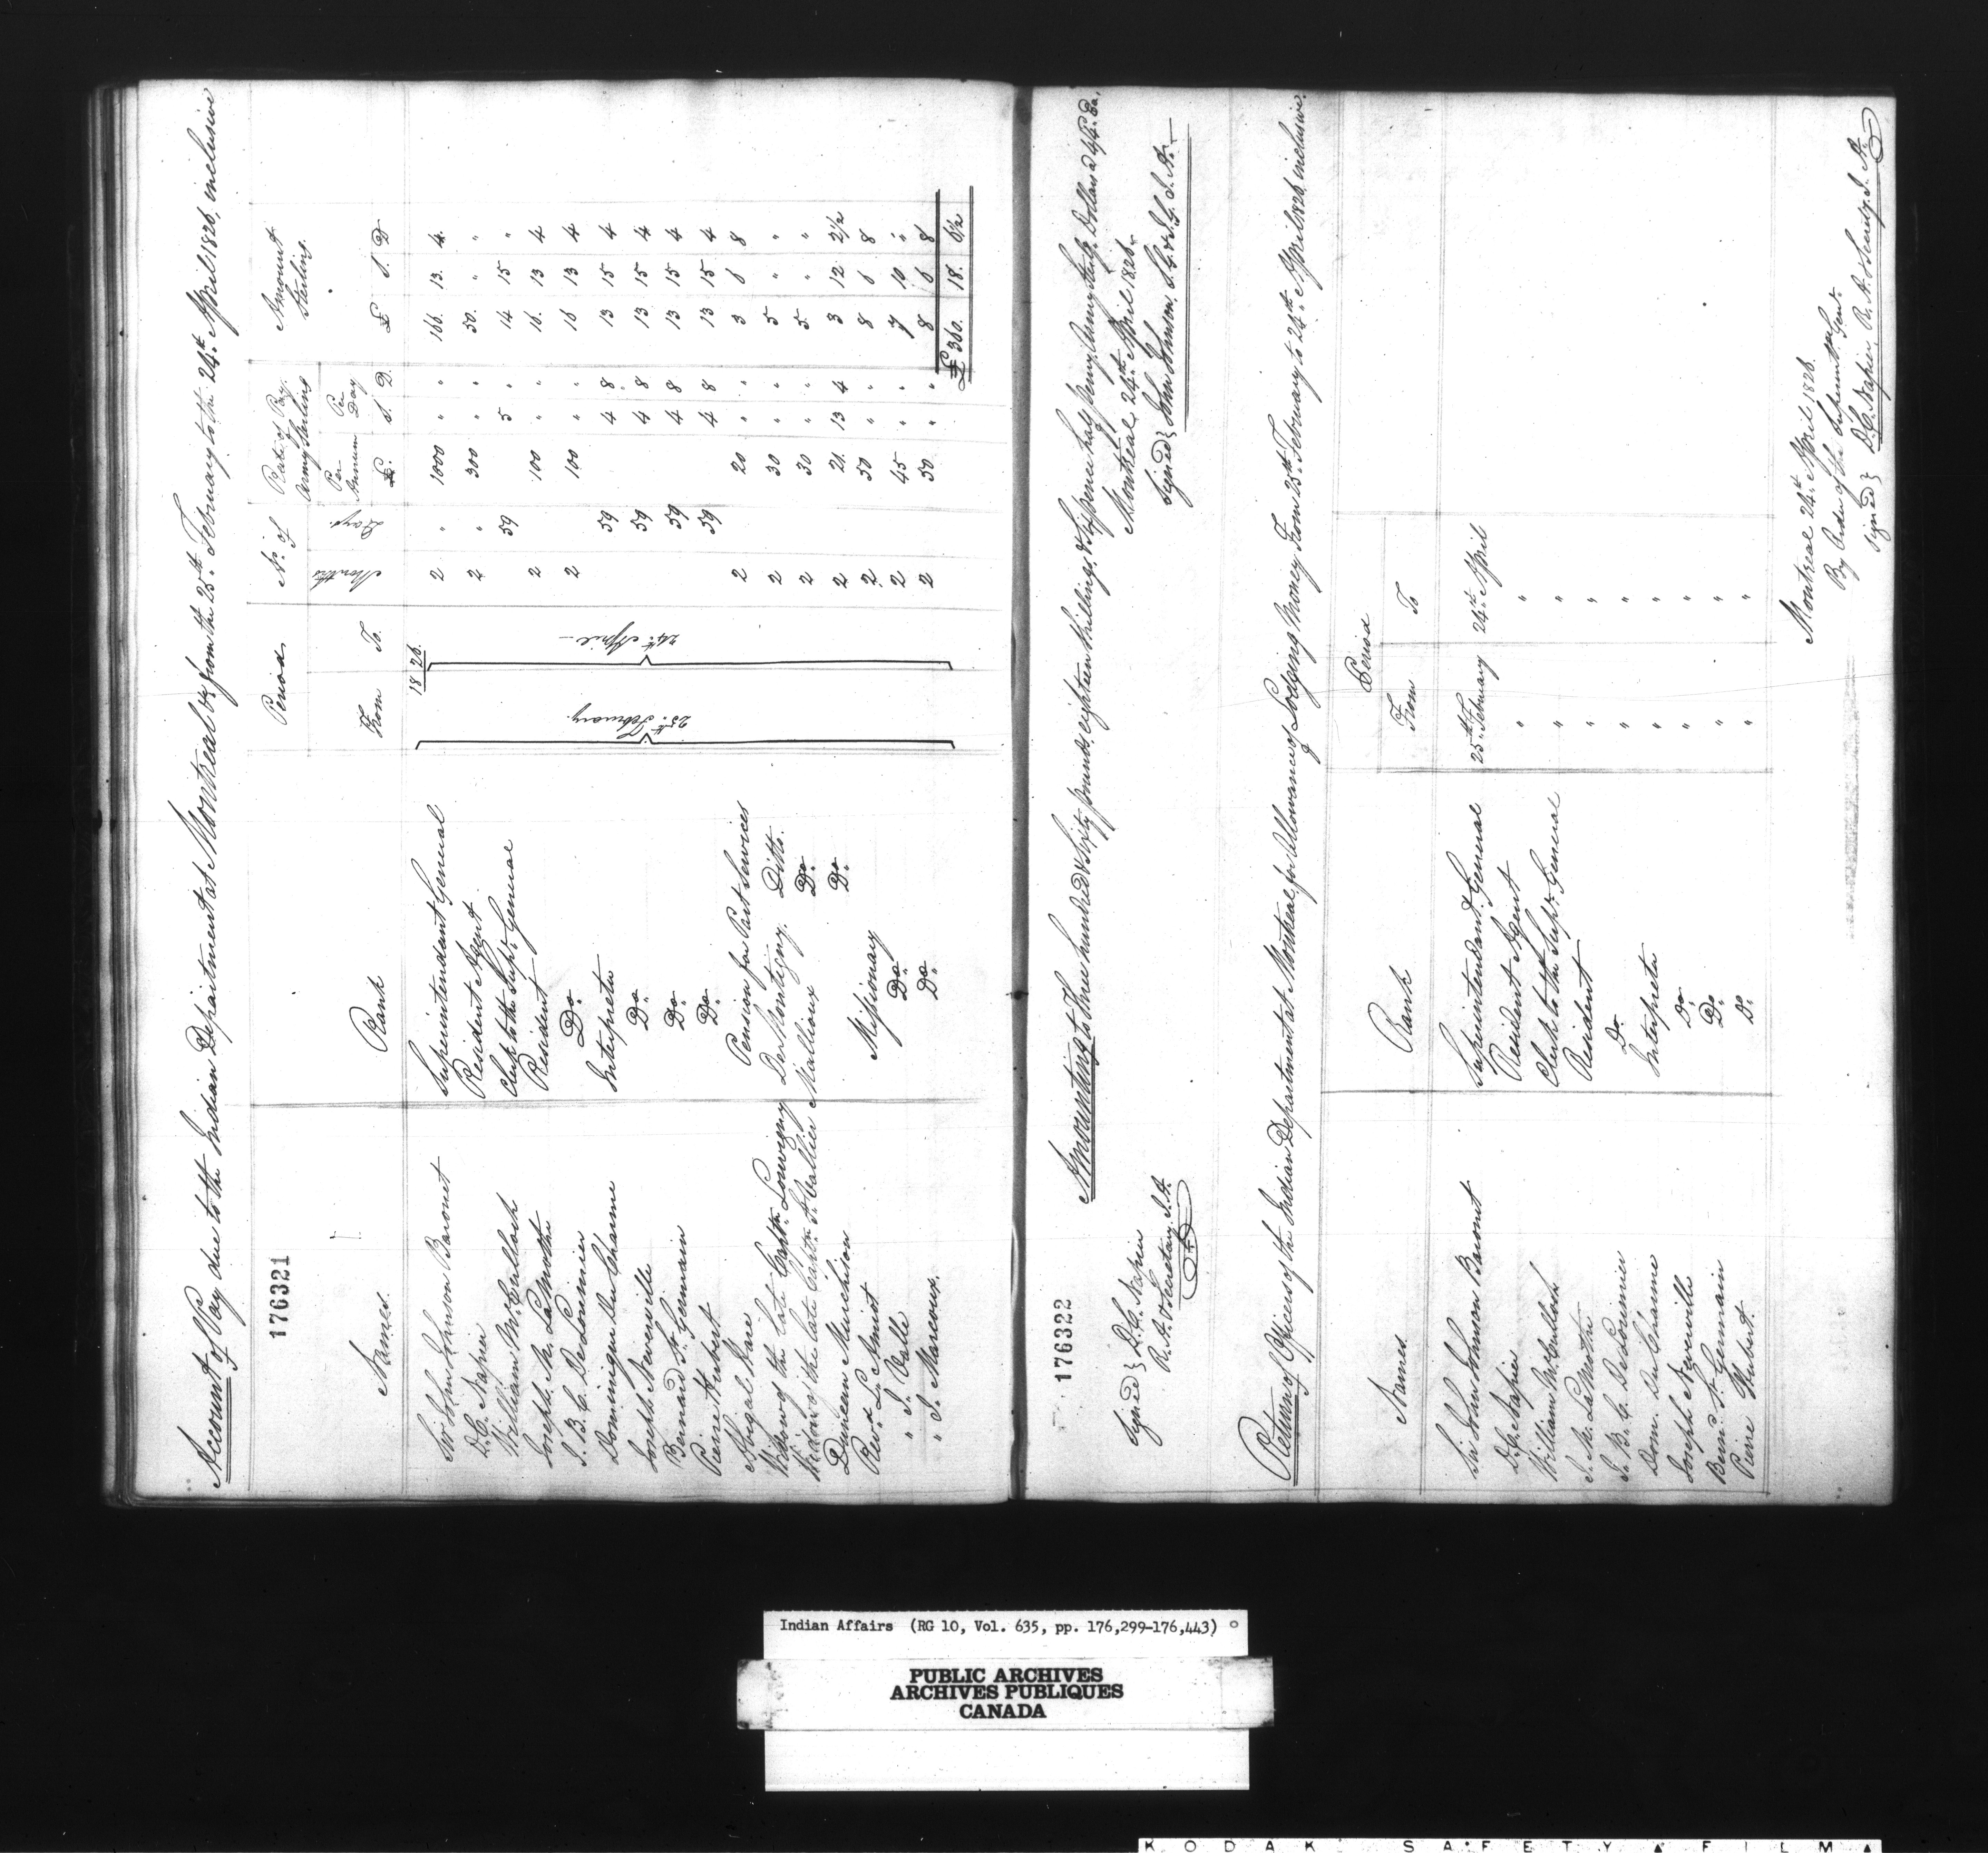 Account of Pay due to the Indian Department at Montreal &c from the 25th February to the 24th April 1826, inclusive
176321
Names. Rank Period No. of Rate of Pay Army Sterling Amount Sterling
From To. Months Days Per Annum Per Day
£. S. D. £ S. D
1826
25th February. 24th April
Sir John Johnson Baronet Superintendant General 2 " 1000 " " 166. 13. 4.
D.C. Napier Resident Agent 2 " 300 " " 50. " "
William McCulloch Clerk to the Supt. General 59 5 " 14 15 "
Joseph M. LaMothe Resident 2 100 " " 16. 13 4
J. B. C. DeLorimier Do. 2 100 " " 16 13 4
Dominique DuCharme Interpreter 59 4 8 13 15 4
Joseph Neverville Do. 59 4 8 13 15 4
Bernard St. Germain Do. 59 4 8 13 15 4
Pierre Hubert Do. 59 4 8 13 15 4
Abigal Hare Pension for Past Services 2 20 " " 3 6 8
Widow of the late Captn. Louvigny DeMontigny. Ditto. 2 30 " " 5 " "
Widow of the late Captn. St. Vallier Mailloux Do. 2 30 " " 5 " "
Duncan Murchison Do. 2 21. 13 4 3 12 2½
Revd. L. Amiot Missionary 2 50 " " 8 6 8
" J. Valle Do. 2 45 " " 7 10 "
" J. Marcoux. Do. 2 50 " " 8 6 8
£ 360. 18. 6½
176322
Amounting to Three hundred & Sixty pounds, eighteen Shillings, & Sixpence half penny Army Sterlg. Dollars @ 4/8 Ea.
Montreal 24th April 1826.
Signed } D. C. Napier
R. A. & Secretary. I. A.
Signed } John Johnson, S. G. & I. G. I. A.
Return of Officers of the Indian Department at Montreal, for Allowance of Lodging Money From 25th February to 24th April 1826, inclusive.
Names Rank Period
From To
Sir John Johnson Baronet Superintendant General 25th February 24th April
D.C. Napier Resident Agent " "
William McCulloch Clerk to the Supt. General " "
J. M. LaMothe Resident " "
J. B. C. DeLorimier Do. " "
Dom. DuCharme Interpreter " "
Joseph Neverville Do. " "
Bern. St. Germain Do. " "
Pierre Hubert. Do. " "
Montreal 24th April 1826.
By Order of the Superint. Genl.
Signed } D.C. Napier, R. A. & Secrety. I. A.
Indian Affairs (RG 10, Vol. 635, pp. 176,299-176,443)
PUBLIC ARCHIVES
ARCHIVES PUBLIQUES
CANADA
KODAK SAFETY FILM